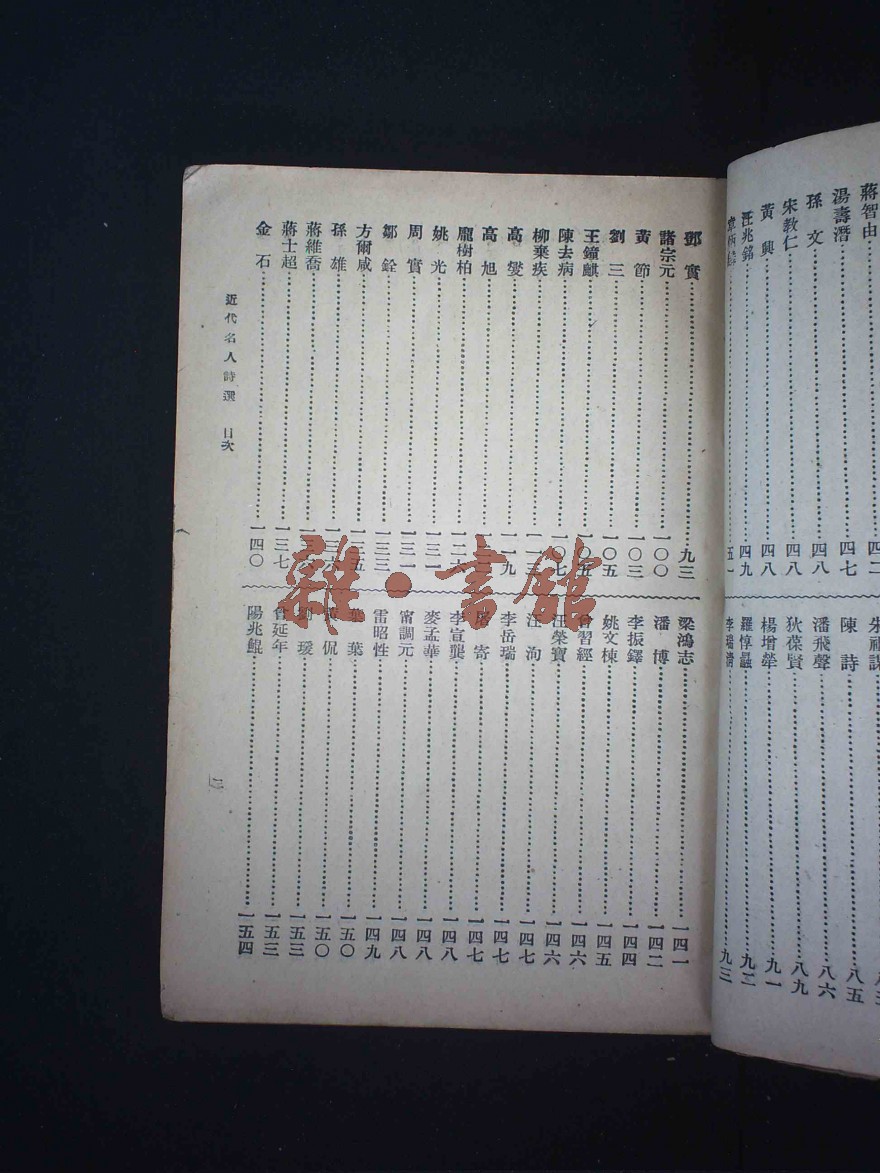 蔣智由……四二
湯壽潛……四七
孫 文……四八
宋教仁……四八
黃 興……四八
汪兆銘……四九
五一
陳 詩……八五
潘飛聲……八六
狄葆賢……八九
楊增犖……九一
羅惇曧……九二
李瑞清……九三
鄧 實……九三
諸宗元……一〇〇
黃 節……一〇三
劉 三……一〇五
王鐘麒……一〇五
陳去病……一〇七
柳棄疾……一一三
高 燮……一一九
高 旭……
龐樹柏……一二六
姚 光……一三一
周 實……一三一
鄒 銓……一三三
方爾咸……一三五
孫 雄……一三六
蔣維喬……
蔣士超……一三七
金 石……一四〇
梁鴻志……一四一
潘 博……一四二
李振鐸……一四四
姚文棟……一四五
曾習經……一四六
汪榮寶……一四六
汪 洵……一四七
李岳瑞……一四七
屠 寄……一四七
李宣龔……一四八
麥孟華……一四八
甯調元……一四八
雷昭性……一四九
葉 葉……一五〇
黃 侃……一五〇
劉 瑗……一五三
曾延年……一五三
陽兆鯤……一五四
近代名人詩選 目次
雜·書館